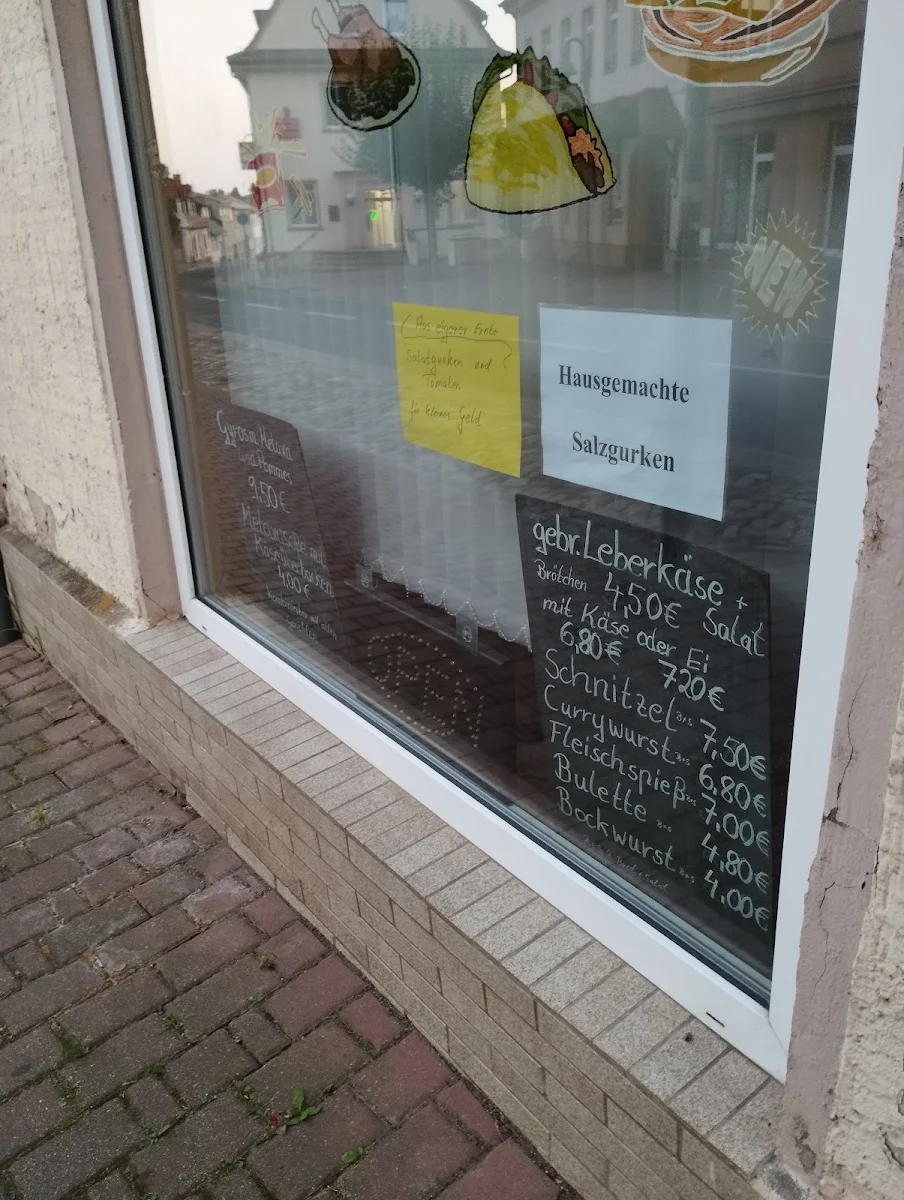 NEW
Aus eigener Ernte
Salatgurken und
Tomaten
für kleines Geld
Hausgemachte
Salzgurken
Gyros m. Metaxa
und Pommes
9,50€
4,00€
gebr. Leberkäse +
Brötchen 4,50€ Salat
mit Käse oder Ei
6,80€ 7,20€
Schnitzel 7,50€
Currywurst 6,80€
Fleischspieß 7,00€
Bulette 4,80€
Bockwurst 4,00€